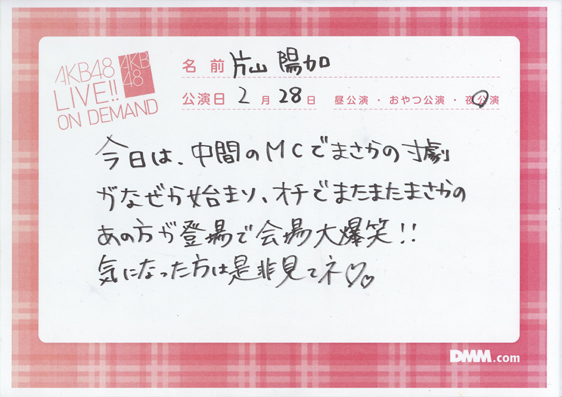 AKB48
LIVE!!
ON DEMAND
AKB
48
名前 片山 陽加
公演日 2月28日 昼公演・おやつ公演・夜公演
今日は、中間のMCでまさかの寸劇
がなぜか始まり、オチでまたまたまさかの
あの方が登場で会場大爆笑!!
気になった方は是非見てネ♡♡
DMM.com